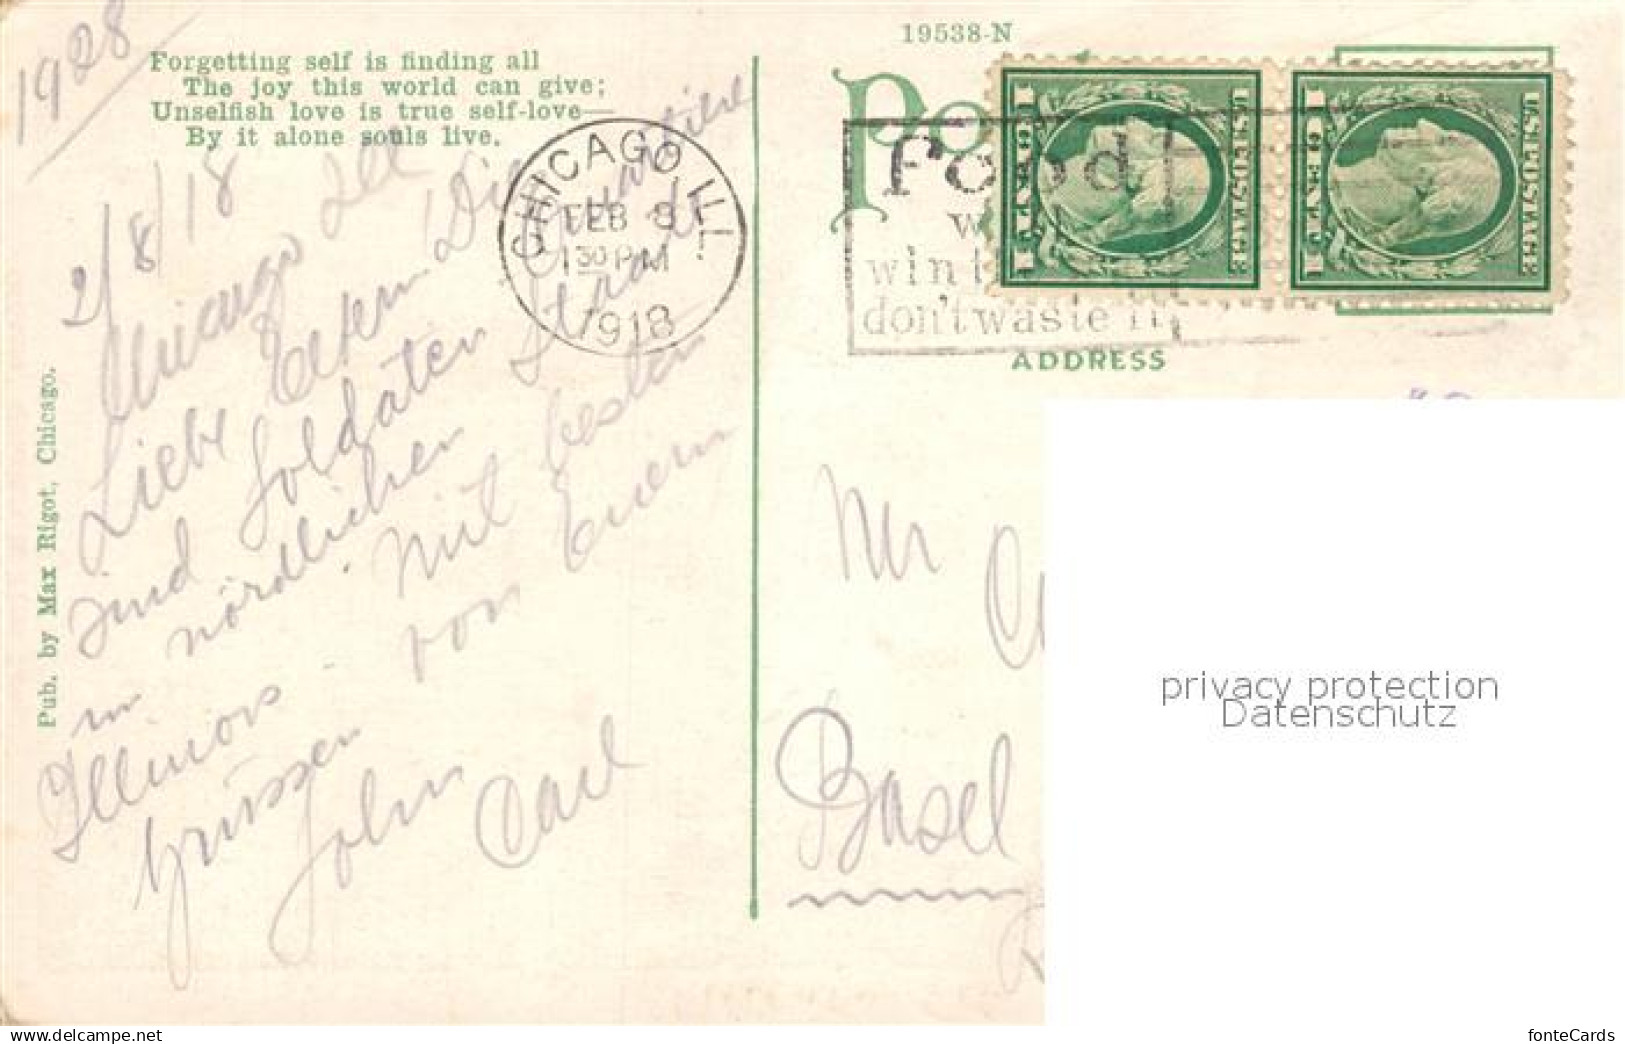 1928
Forgetting self is finding all
The joy this world can give;
Unselfish love is true self-love—
By it alone souls live.
19538-N
CHICAGO, ILL.
FEB 8
130 PM
1918
food
win
don't waste it
U.S. POSTAGE
1 CENT 1
U.S. POSTAGE
1 CENT 1
ADDRESS
Pub. by Max Rigot, Chicago.
2/8/18
Chicago Ill
Liebe Eltern Die
sind Soldaten
in nördlichen
Illinois. Mit besten
Grüssen von Euerm
John Carl
Mr
Basel
privacy protection
Datenschutz
fonteCards